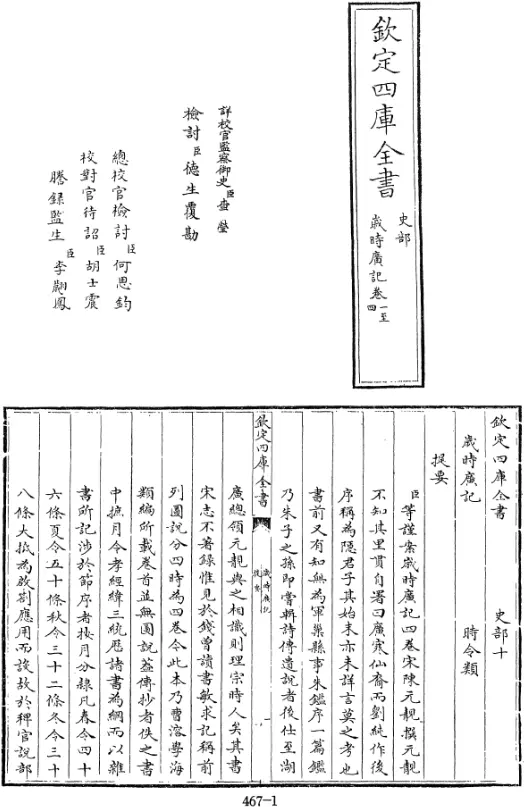 欽定四庫全書
史部
歳時廣記卷一至四
詳校官監察御史臣曹錫
檢討臣德生覆勘
總校官檢討臣何思鈞
校對官待詔臣胡士震
謄錄監生臣李翽鳳
欽定四庫全書 史部十
歳時廣記 時令類
提要
臣等謹案歳時廣記四卷宋陳元靚撰元靚
不知其里貫自署曰廣寒仙裔而劉純作後
序稱為隠君子其始末亦未詳言莫之考也
書前又有知無為軍巢縣事朱鑑序一篇鑑
乃朱子之孫即嘗輯詩傳遺説者後仕至湖
欽定四庫全書
歳時廣記
提要
廣總領元靚與之相識則理宗時人矣其書
宋志不著錄惟見於錢曾讀書敏求記稱前
列圖説分四時為四卷今此本乃曹溶學海
類編所載卷首並無圖説蓋傳抄者佚之書
中摭月令孝經緯三統厯諸書為綱而以雜
書所記涉於節序者按月分隸凡春令四十
六條夏令五十條秋令三十二條冬令三十
八條大抵為啟劄應用而設故於稗官說部
467-1